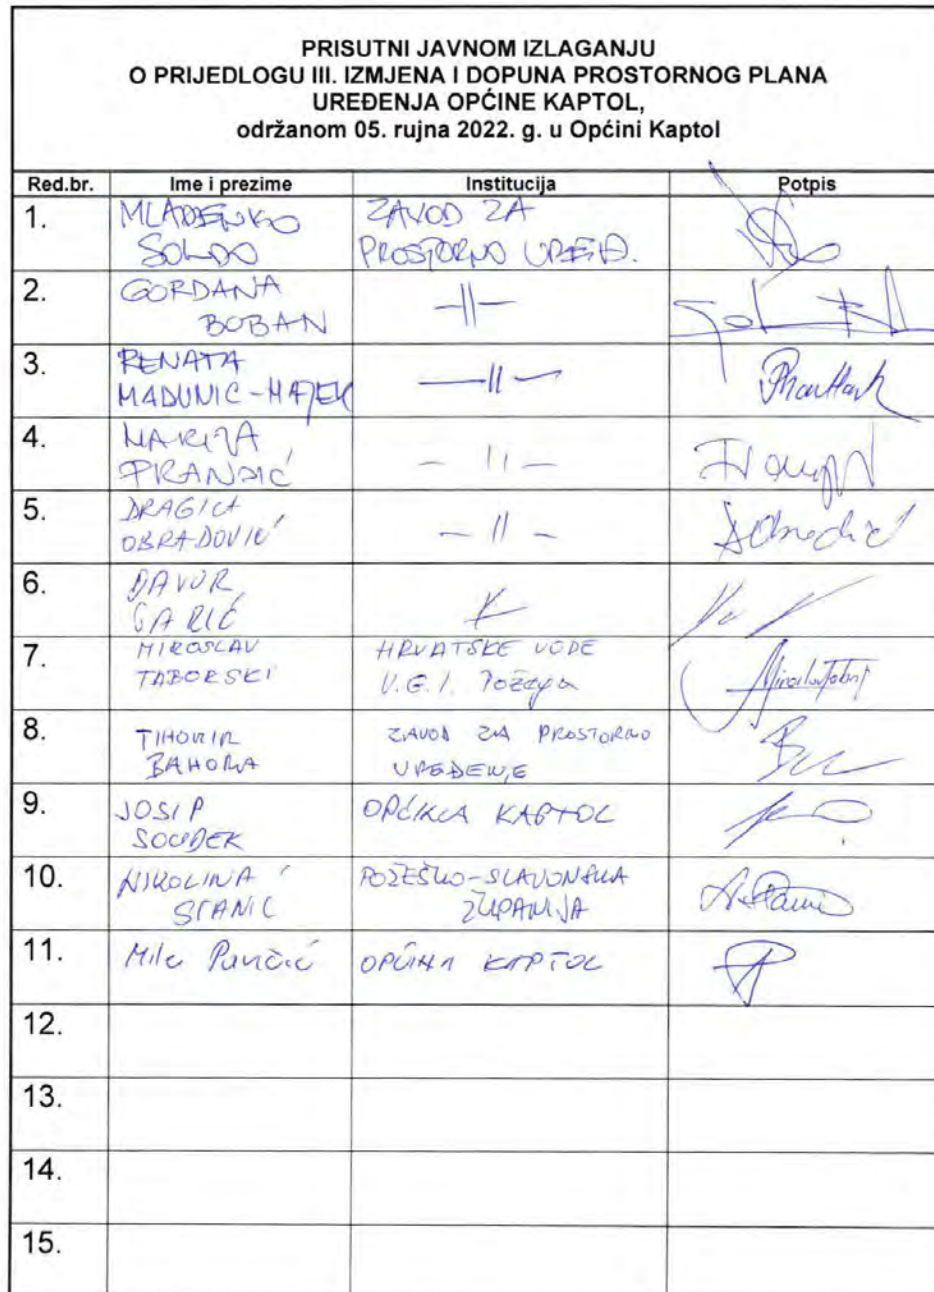 PRISUTNI JAVNOM IZLAGANJU
O PRIJEDLOGU III. IZMJENA I DOPUNA PROSTORNOG PLANA
UREĐENJA OPĆINE KAPTOL,
održanom 05. rujna 2022. g. u Općini Kaptol
Red.br. Ime i prezime Institucija Potpis
1. MLADENKO SOLDO ZAVOD ZA PROSTORNO UREĐ.
2. GORDANA BOBAN -||-
3. RENATA MADUNIC-HAJEK -||-
4. MARIJA FRANDIĆ -||-
5. DRAGICA OBRADOVIĆ -||-
6. DAVOR
7. MIROSLAV TABORSKI HRVATSKE VODE V.G.I. Požega
8. TIHOMIR BAHORA ZAVOD ZA PROSTORNO UREĐENJE
9. JOSIP SOUDEK OPĆINA KAPTOL
10. NIKOLINA STANIĆ POŽEŠKO-SLAVONSKA ŽUPANIJA
11. Mile Pavičić OPĆINA KAPTOL
12.
13.
14.
15.